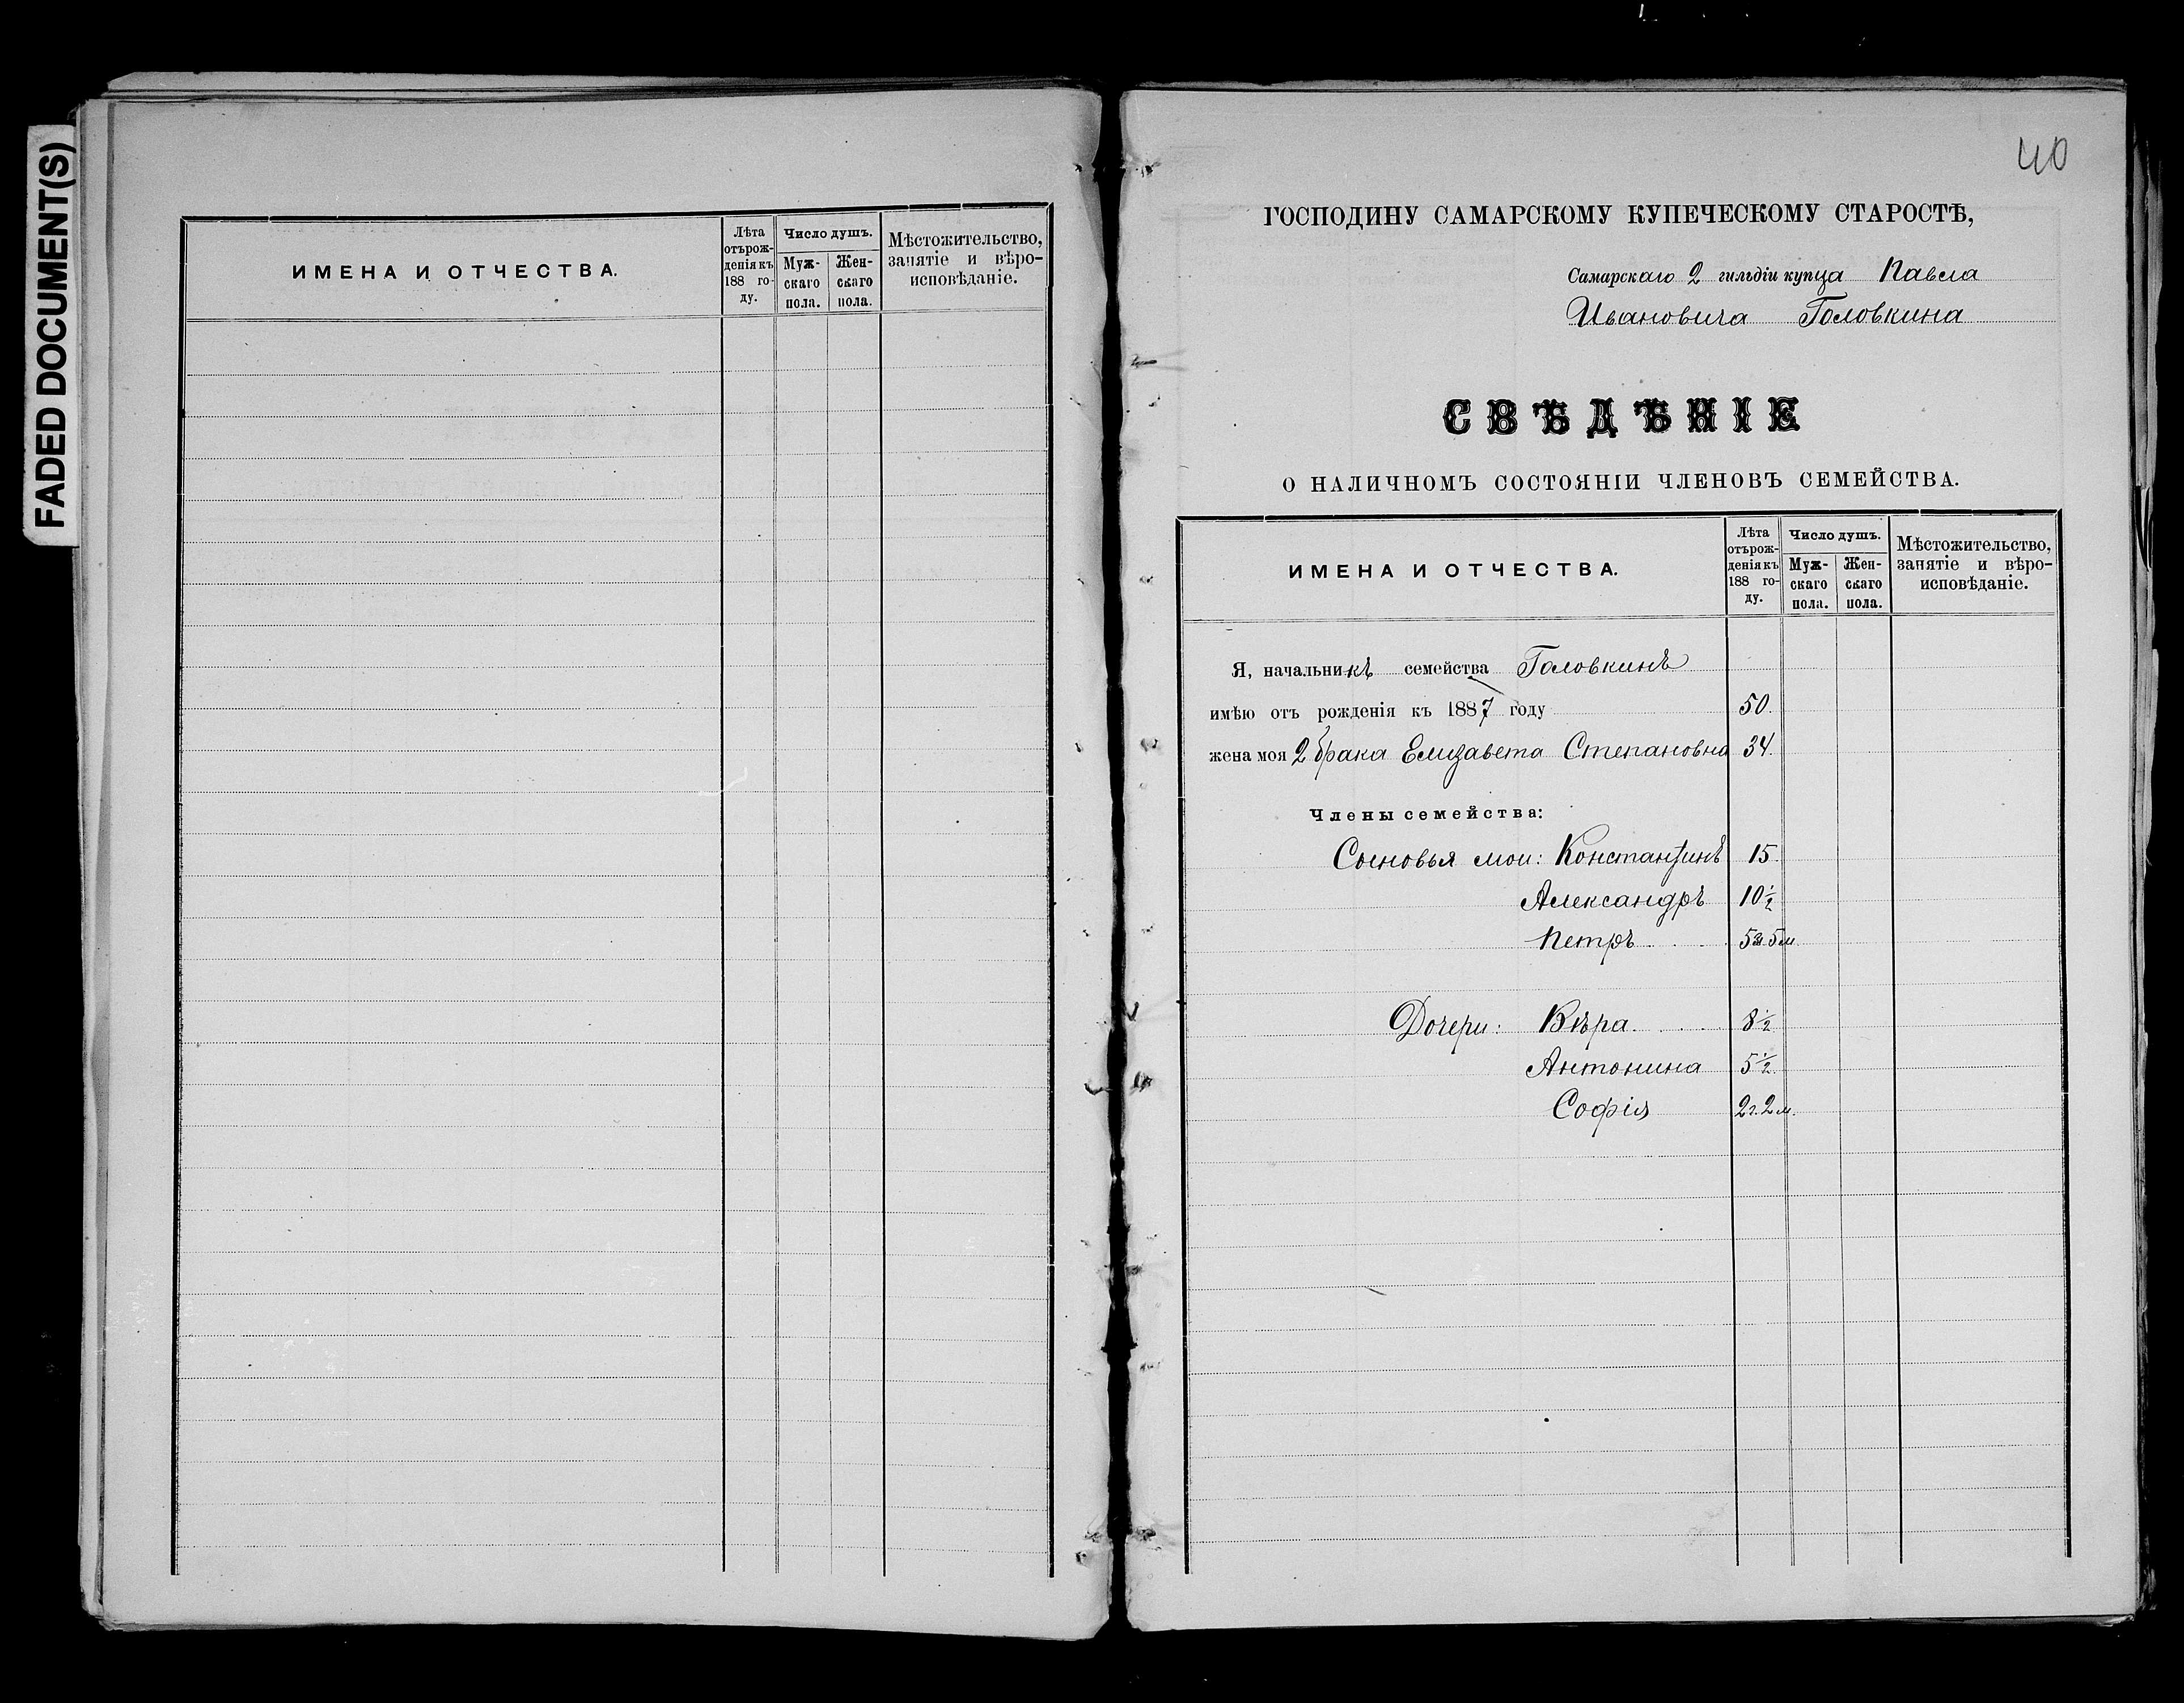 FADED DOCUMENT(S)
ИМЕНА И ОТЧЕСТВА.
Лѣта отърож-
денія къ
188 го-
ду.
Число душъ.
Муж-
скаго
пола.
Жен-
скаго
пола.
Мѣстожительство,
занятіе и вѣро-
исповѣданіе.
40
ГОСПОДИНУ САМАРСКОМУ КУПЕЧЕСКОМУ СТАРОСТѢ,
Самарскаго 2 гильдіи купца Павла
Ивановича Головкина
СВѢДѢНІЕ
О НАЛИЧНОМЪ СОСТОЯНІИ ЧЛЕНОВЪ СЕМЕЙСТВА.
ИМЕНА И ОТЧЕСТВА.
Лѣта
отърож-
денія къ
188 го-
ду.
Число душъ.
Муж-
скаго
пола.
Жен-
скаго
пола.
Мѣстожительство,
занятіе и вѣро-
исповѣданіе.
Я, начальникъ семейства Головкинъ
имѣю отъ рожденія къ 1887 году 50.
жена моя 2 брака Елизавета Степановна 34.
Члены семейства:
Сыновья мои: Константинъ 15.
Александръ 10½
Петръ 5 5м.
Дочери: Вѣра 8½
Антонина 5½
Софія 2г. 2м.